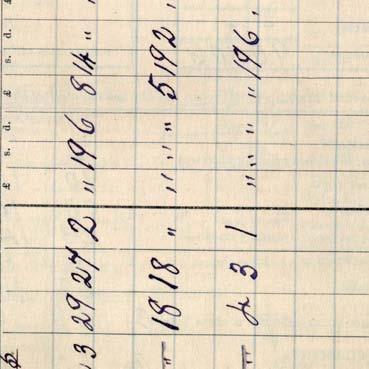 £ s. d. £ s. d.
3 29 27 2 " 19 6 8 14 "
" 18 18 " " " " 5 19 2
" 3 1 " " " " 19 6